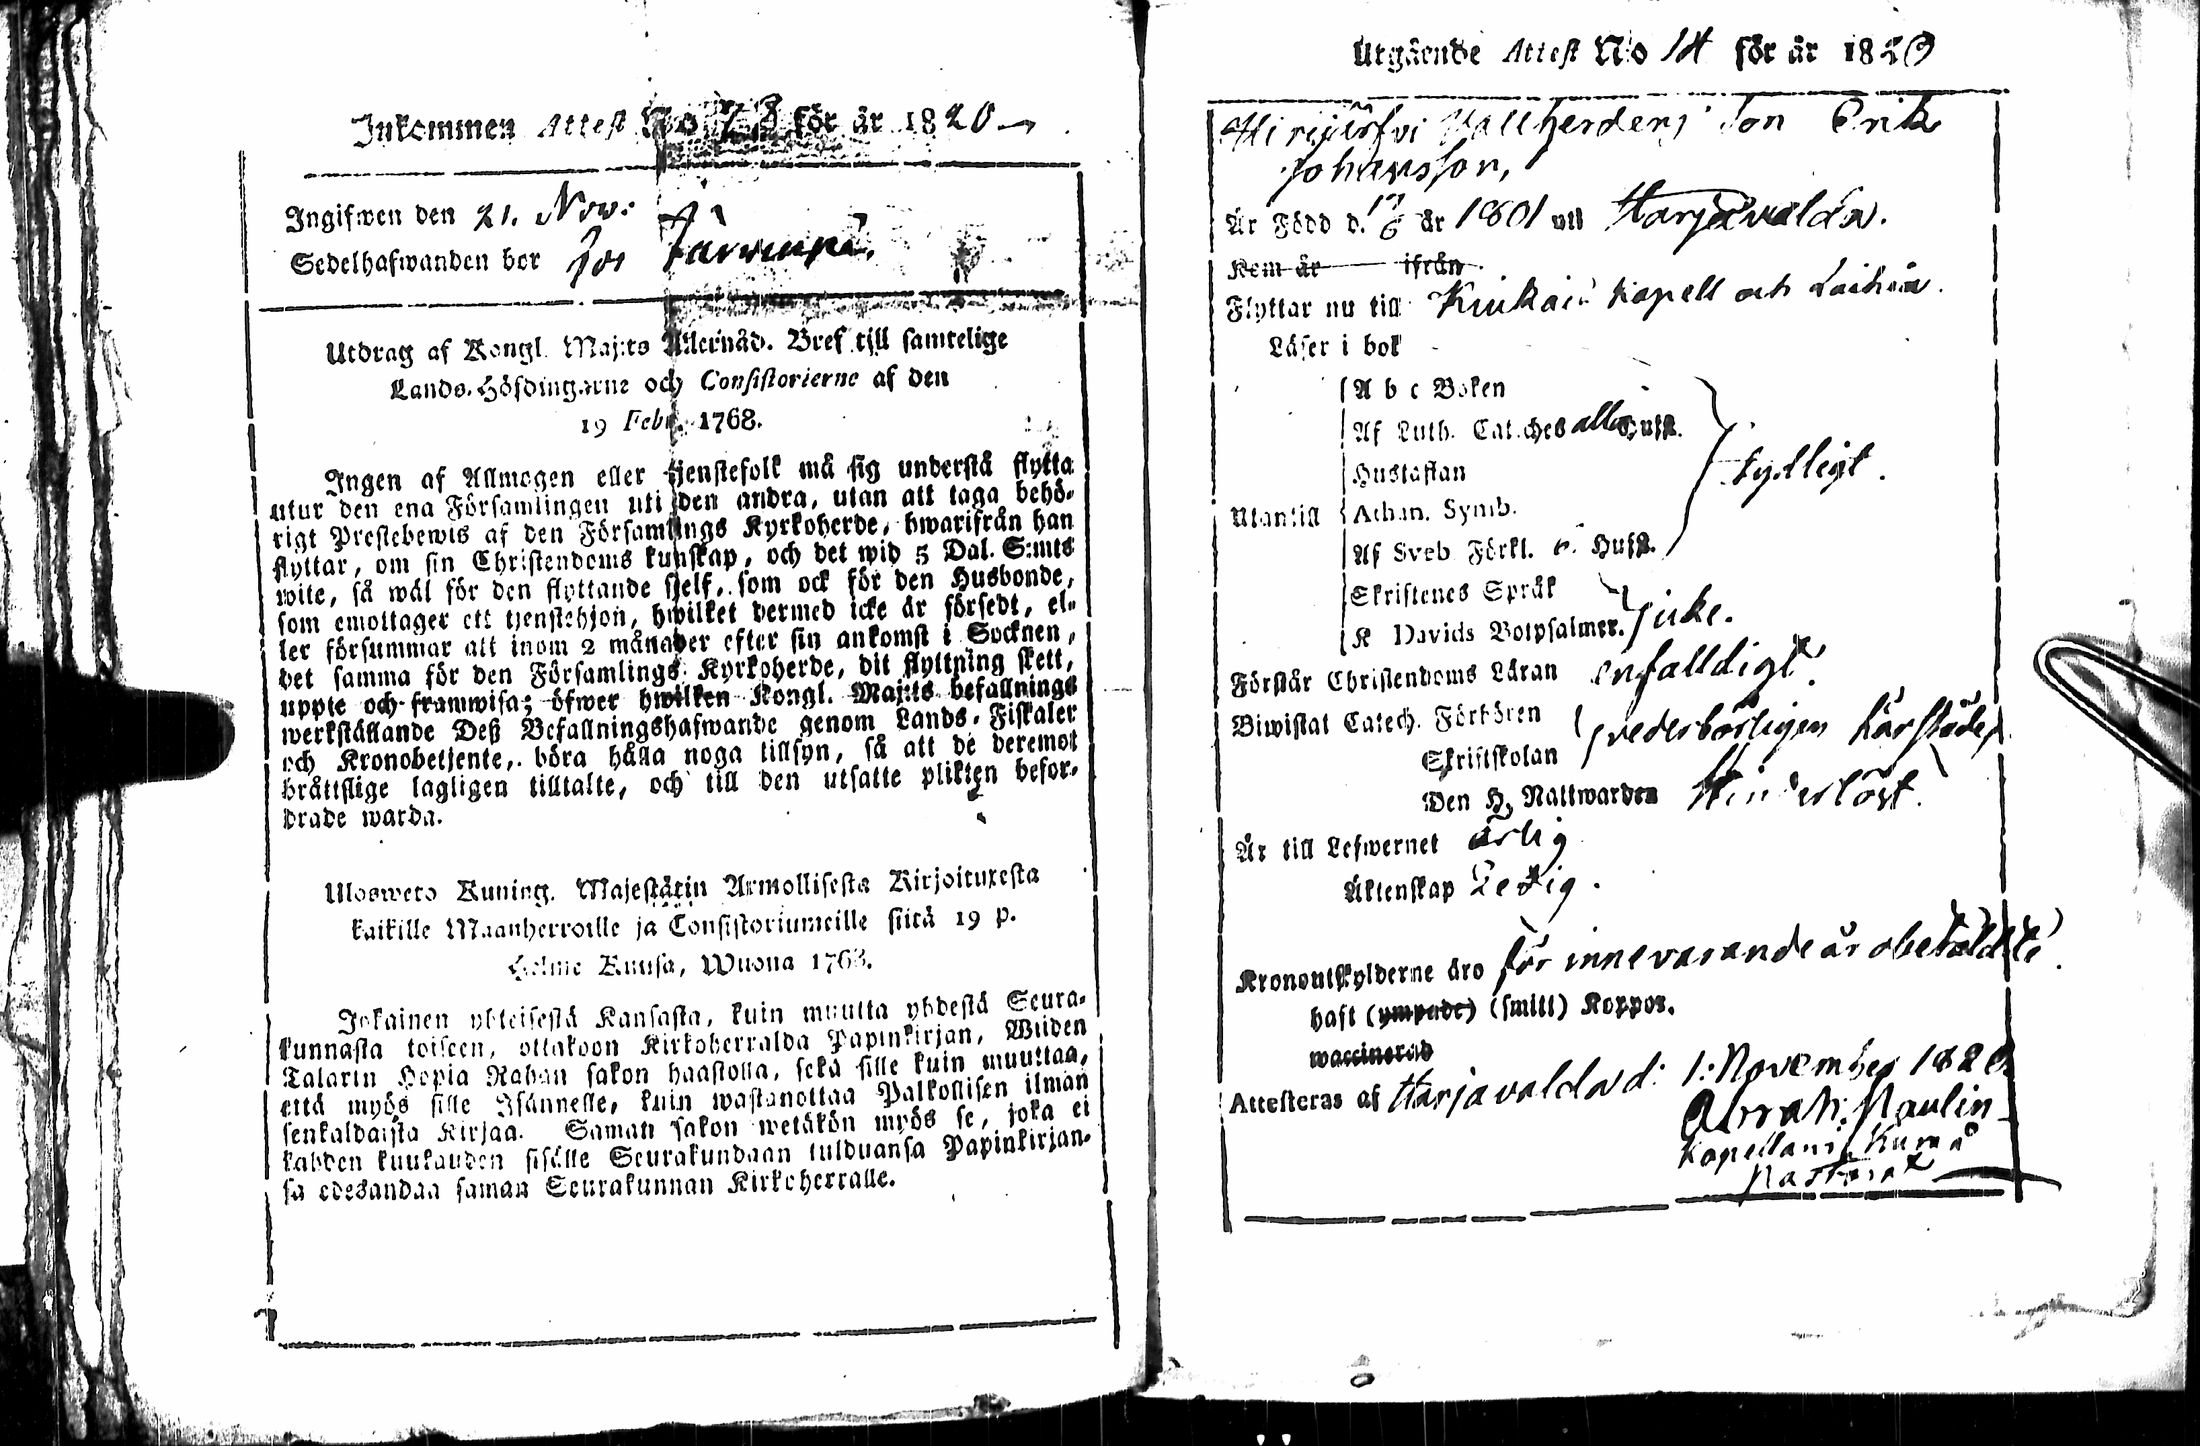 Inkommen Attest No 73 för år 1820
Ingifwen den 21. Nov:
Sedelhafwanden bor hos
Utdrag af Kongl. Maj:ts Allernåd. Bref till samtelige
Lands-Höfdingarne och Consistorierne af den
19 Febr. 1768.
Ingen af Allmogen eller tjenstefolk må sig understå flytta
utur den ena Församlingen uti den andra, utan att taga behö-
rigt Prestebewis af den Församlings Kyrkoherde, hwarifrån han
flyttar, om sin Christendoms kunskap, och det wid 5 Dal. S:mts
wite, så wäl för den flyttande sjelf, som ock för den Husbonde,
som emottager ett tjenstehjon, hwilket dermed icke är försedt, el-
ler försummar att inom 2 månader efter sin ankomst i Socknen,
det samma för den Församlings Kyrkoherde, dit flyttning skett,
uppte och framwisa; öfwer hwilken Kongl. Maj:ts befallnings
werkställande Deß Befallningshafwande genom Lands-Fiskaler
och Kronobetjente, böra hålla noga tillsyn, så att de deremot
bråttslige lagligen tilltalte, och till den utsatte plikten befor-
drade warda.
Ulosweto Kuning. Majestätin Armollisesta Kirjoituxesta
kaikille Maanherroille ja Consistoriumeille siitä 19 p.
Helme Kuusa, Wuona 1768.
Jokainen yhteisestä Kansasta, kuin muutta yhdestä Seura-
kunnasta toiseen, ottakoon Kirkoherralda Papinkirjan, Wiiden
Talarin Hopia Rahan sakon haastolla, sekä sille kuin muuttaa,
että myös sille Isännelle, kuin wastanottaa Palkollisen ilman
senkaldaista Kirjaa. Saman sakon wetäkön myös se, joka ei
kahden kuukauden sisälle Seurakundaan tulduansa Papinkirjan-
sa edesandaa saman Seurakunnan Kirkoherralle.
Utgående Attest No 14 för år 1820
Hirijärfvi Vallherdens Son Erik
Johansson,
Är Född d. 17/6 år 1801 uti Harjavalda.
Kom år ifrån
Flyttar nu till Kiukais Kapell och
Läser i bok
A b c Boken
Af Luth. Catches alla Hufst.
Hustaflan
Utantill Athan. Symb.
Af Sveb Förkl. 6. Hufst.
tydligt.
Skriftenes Språk
K Davids Botpsalmer. icke.
Förstår Christendoms Läran enfalldigt.
Biwistat Catech. Förhören
Skriftskolan
vederbörligen härstädes
Den H. Nattwarden Hinderlöst.
Är till Lefwernet ärlig
Äktenskap Ledig.
Kronoutskylderne äro för innevarande år obetaldte.
haft (ympade) (smitt) Koppor.
waccinerad
Attesteras af Harjavalda d: 1: November 1820
Abrah: Paulin
Kapellan i Kumo
Pastorat